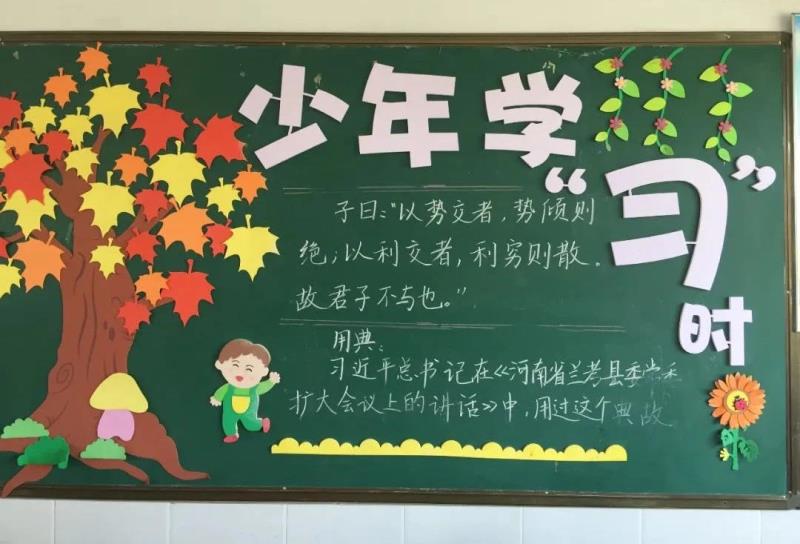 少年学
“习”
时
子曰:“以势交者,势倾则
绝;以利交者,利穷则散。
故君子不与也。”
用典:
习近平总书记在《河南省兰考县委常委
扩大会议上的讲话》中,用过这个典故